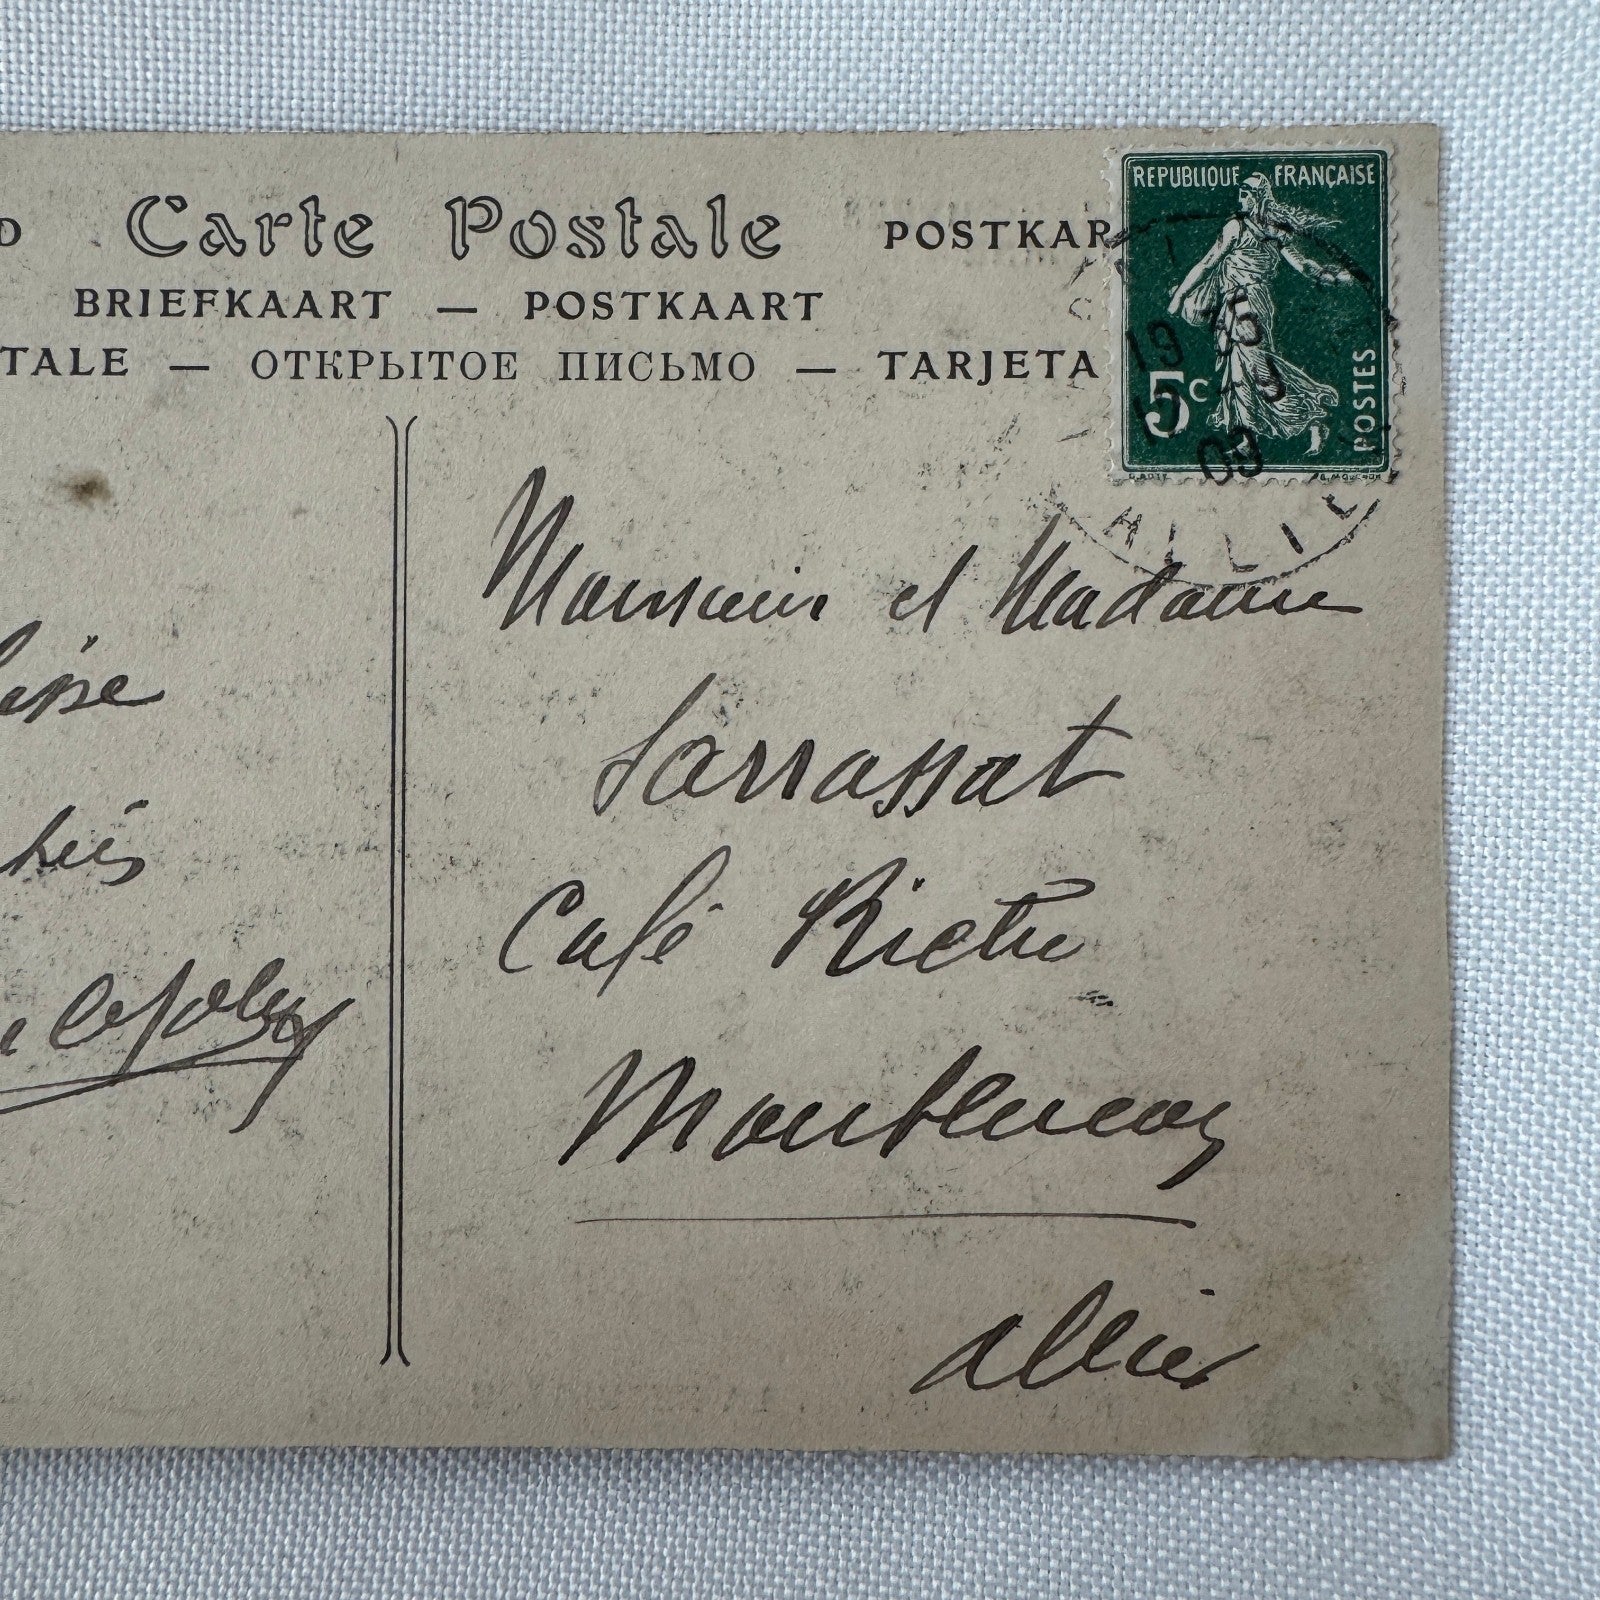 D Carte Postale POSTKAR
BRIEFKAART — POSTKAART
TALE — ОТКРЫТОЕ ПИСЬМО — TARJETA
REPUBLIQUE FRANÇAISE
5c
POSTES
19 15
09
ALLIE
Monsieur et Madame
Sarrassat
Café Rictu
Montlucon
Allier